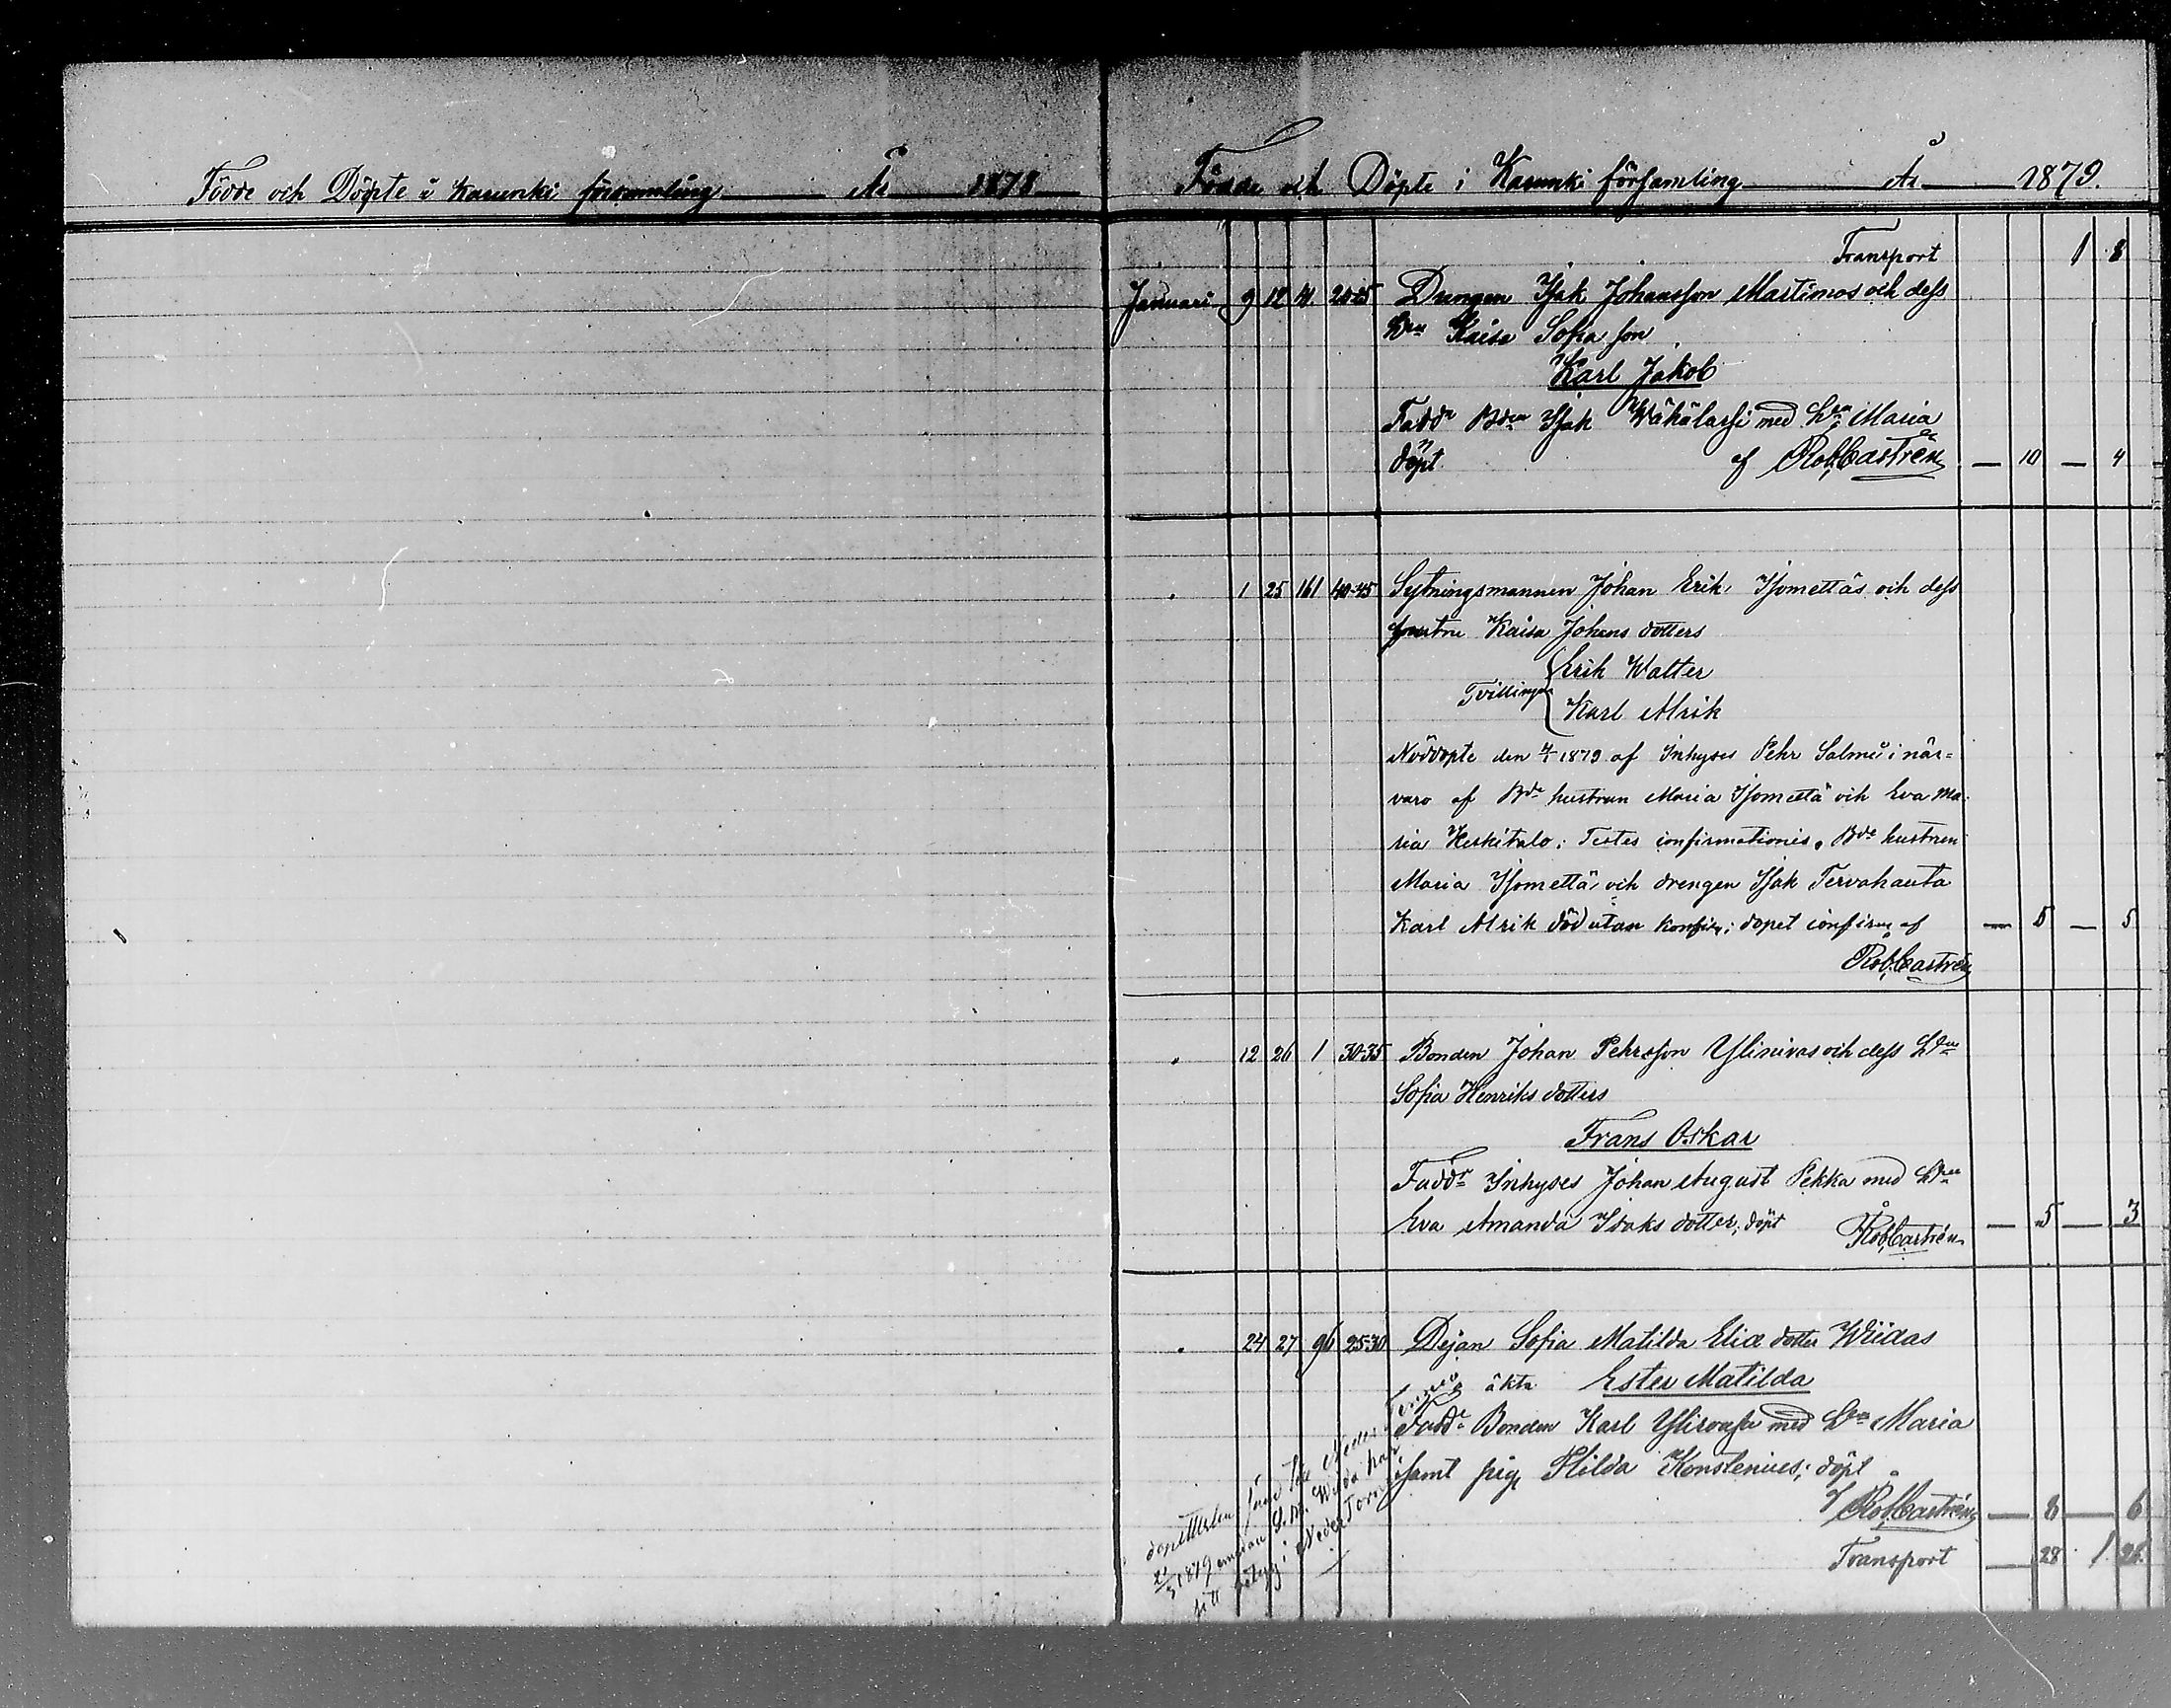 Födde och Döpte i Karunki församling År 1878
Födde och Döpte i Karunki församling År 1879.
Transport 1 8
Januari 9 12 20-25 Drengen Isak Johansson Martimos och dess
Hru Kaisa Sofia son
Karl Jakob
Faddr Bden Isak Wähälassi med Hru Maria
döpt af Rob Castrén — 10 — 4
1 25 161 40-45 Sytningsmannen Johan Erik Isomettäs och dess
hustru Kaisa Johans dotters
Erik Walter
Tvillingar
Karl Alrik
Nöddöpte den 4/1 1879 af Inhyses Pehr Salmi i när-
varo af Bde hustrun Maria Isomettä och Eva Ma-
ria Keskitalo; Testes confirmationis, Bde hustrun
Maria Isomettä och drengen Isak Tervahauta
Karl Alrik död utan konfirm; dopet confirm af — 5 — 5
Rob. Castrén
12 26 1 30-35 Bonden Johan Pehrsson Ylinivas och dess Hru
Sofia Henriks dotters
Frans Oskar
Faddr Inhyses Johan August Pekka med Hru
Eva Amanda Isaks dotter; döpt Rob Castrén — 5 — 3
24 27 96 25-30 Dejan Sofia Matilda Eliæ dotter Wiidas
oäkta Ester Matilda
Faddr Bonden Karl Ylirousu med Hru Maria
samt pig Hilda Konstenius; döpt
af Rob Castrén — 8 — 6
Transport — 28 1 26
1879 emedan S. M. Wiida har
sitt i Neder Torneå